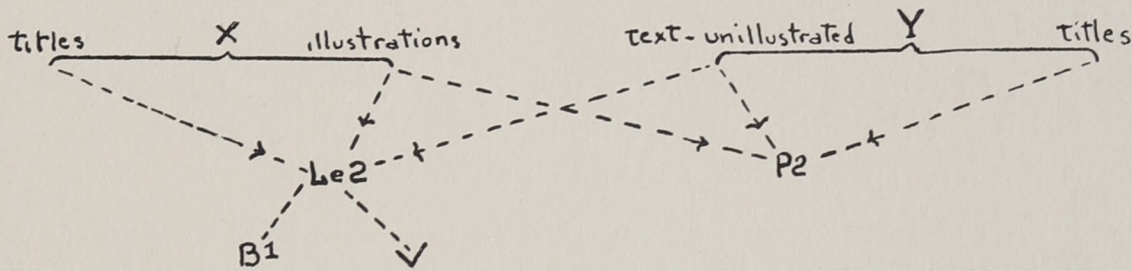 titles X illustrations text-unillustrated Y titles
Le2 P2
B1 V